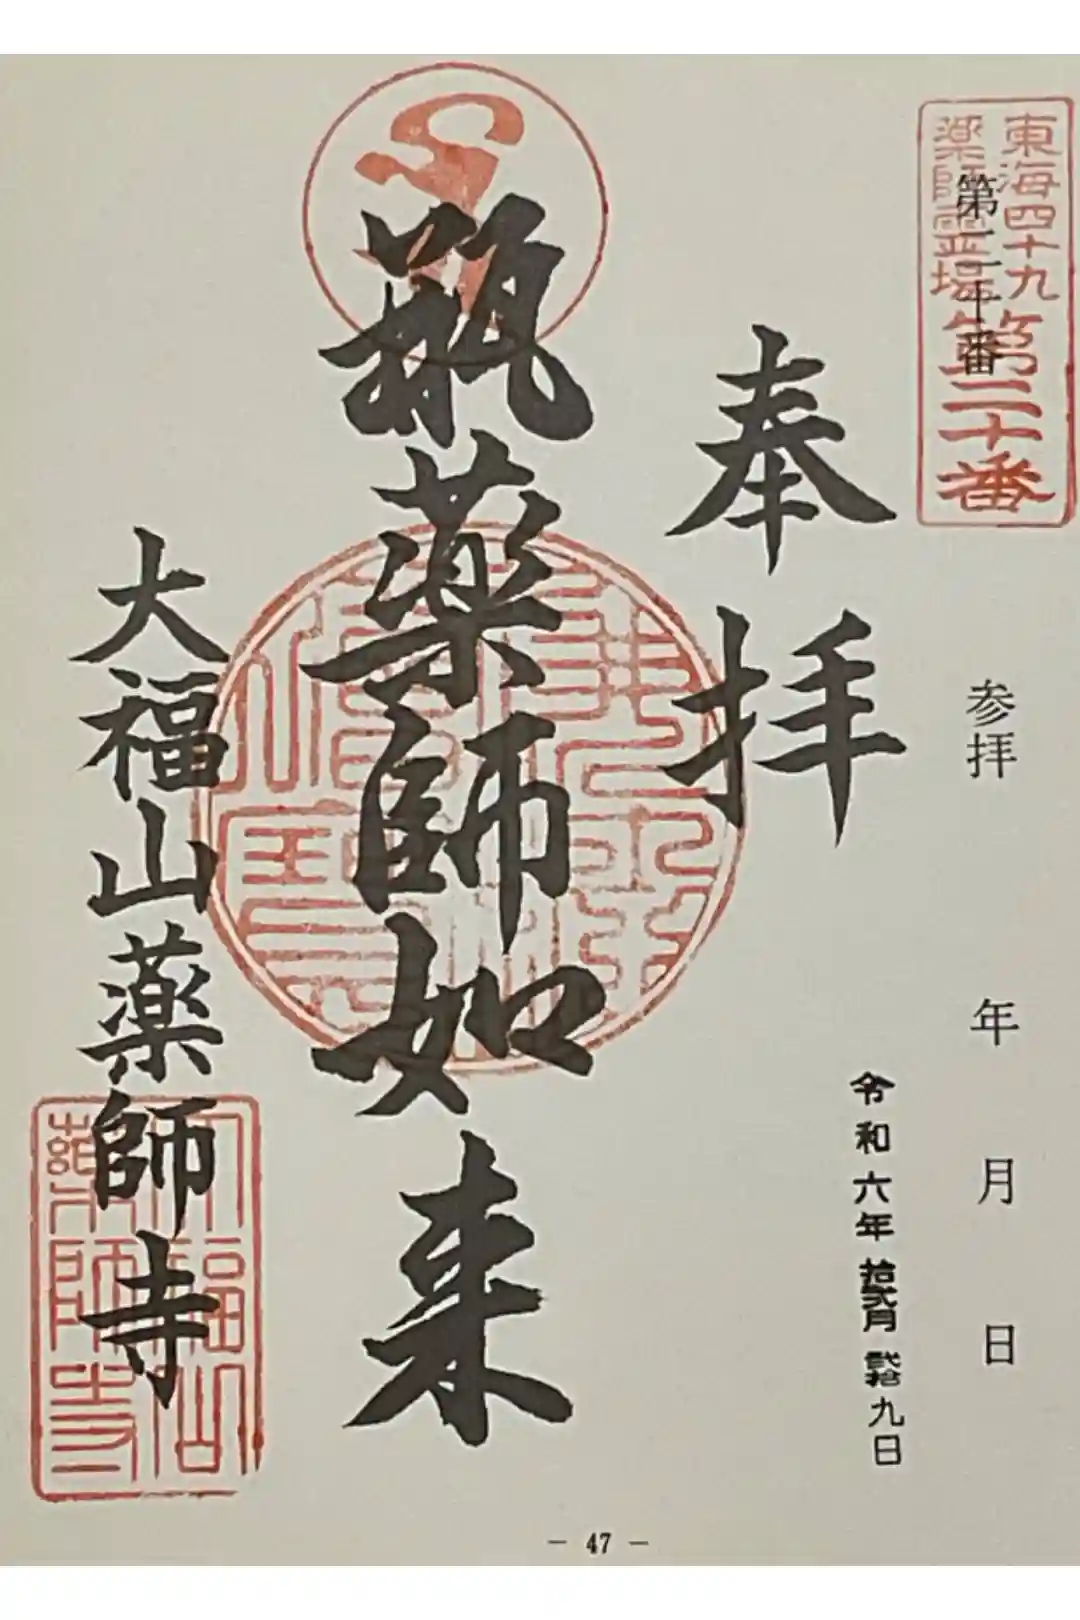 東海四十九
薬師霊場
第二十番
第二十番
参拝 年 月 日
令和六年拾弐月弐拾九日
奉拝
瓶薬師如来
大福山薬師寺
大福山
薬師寺
－ 47 －